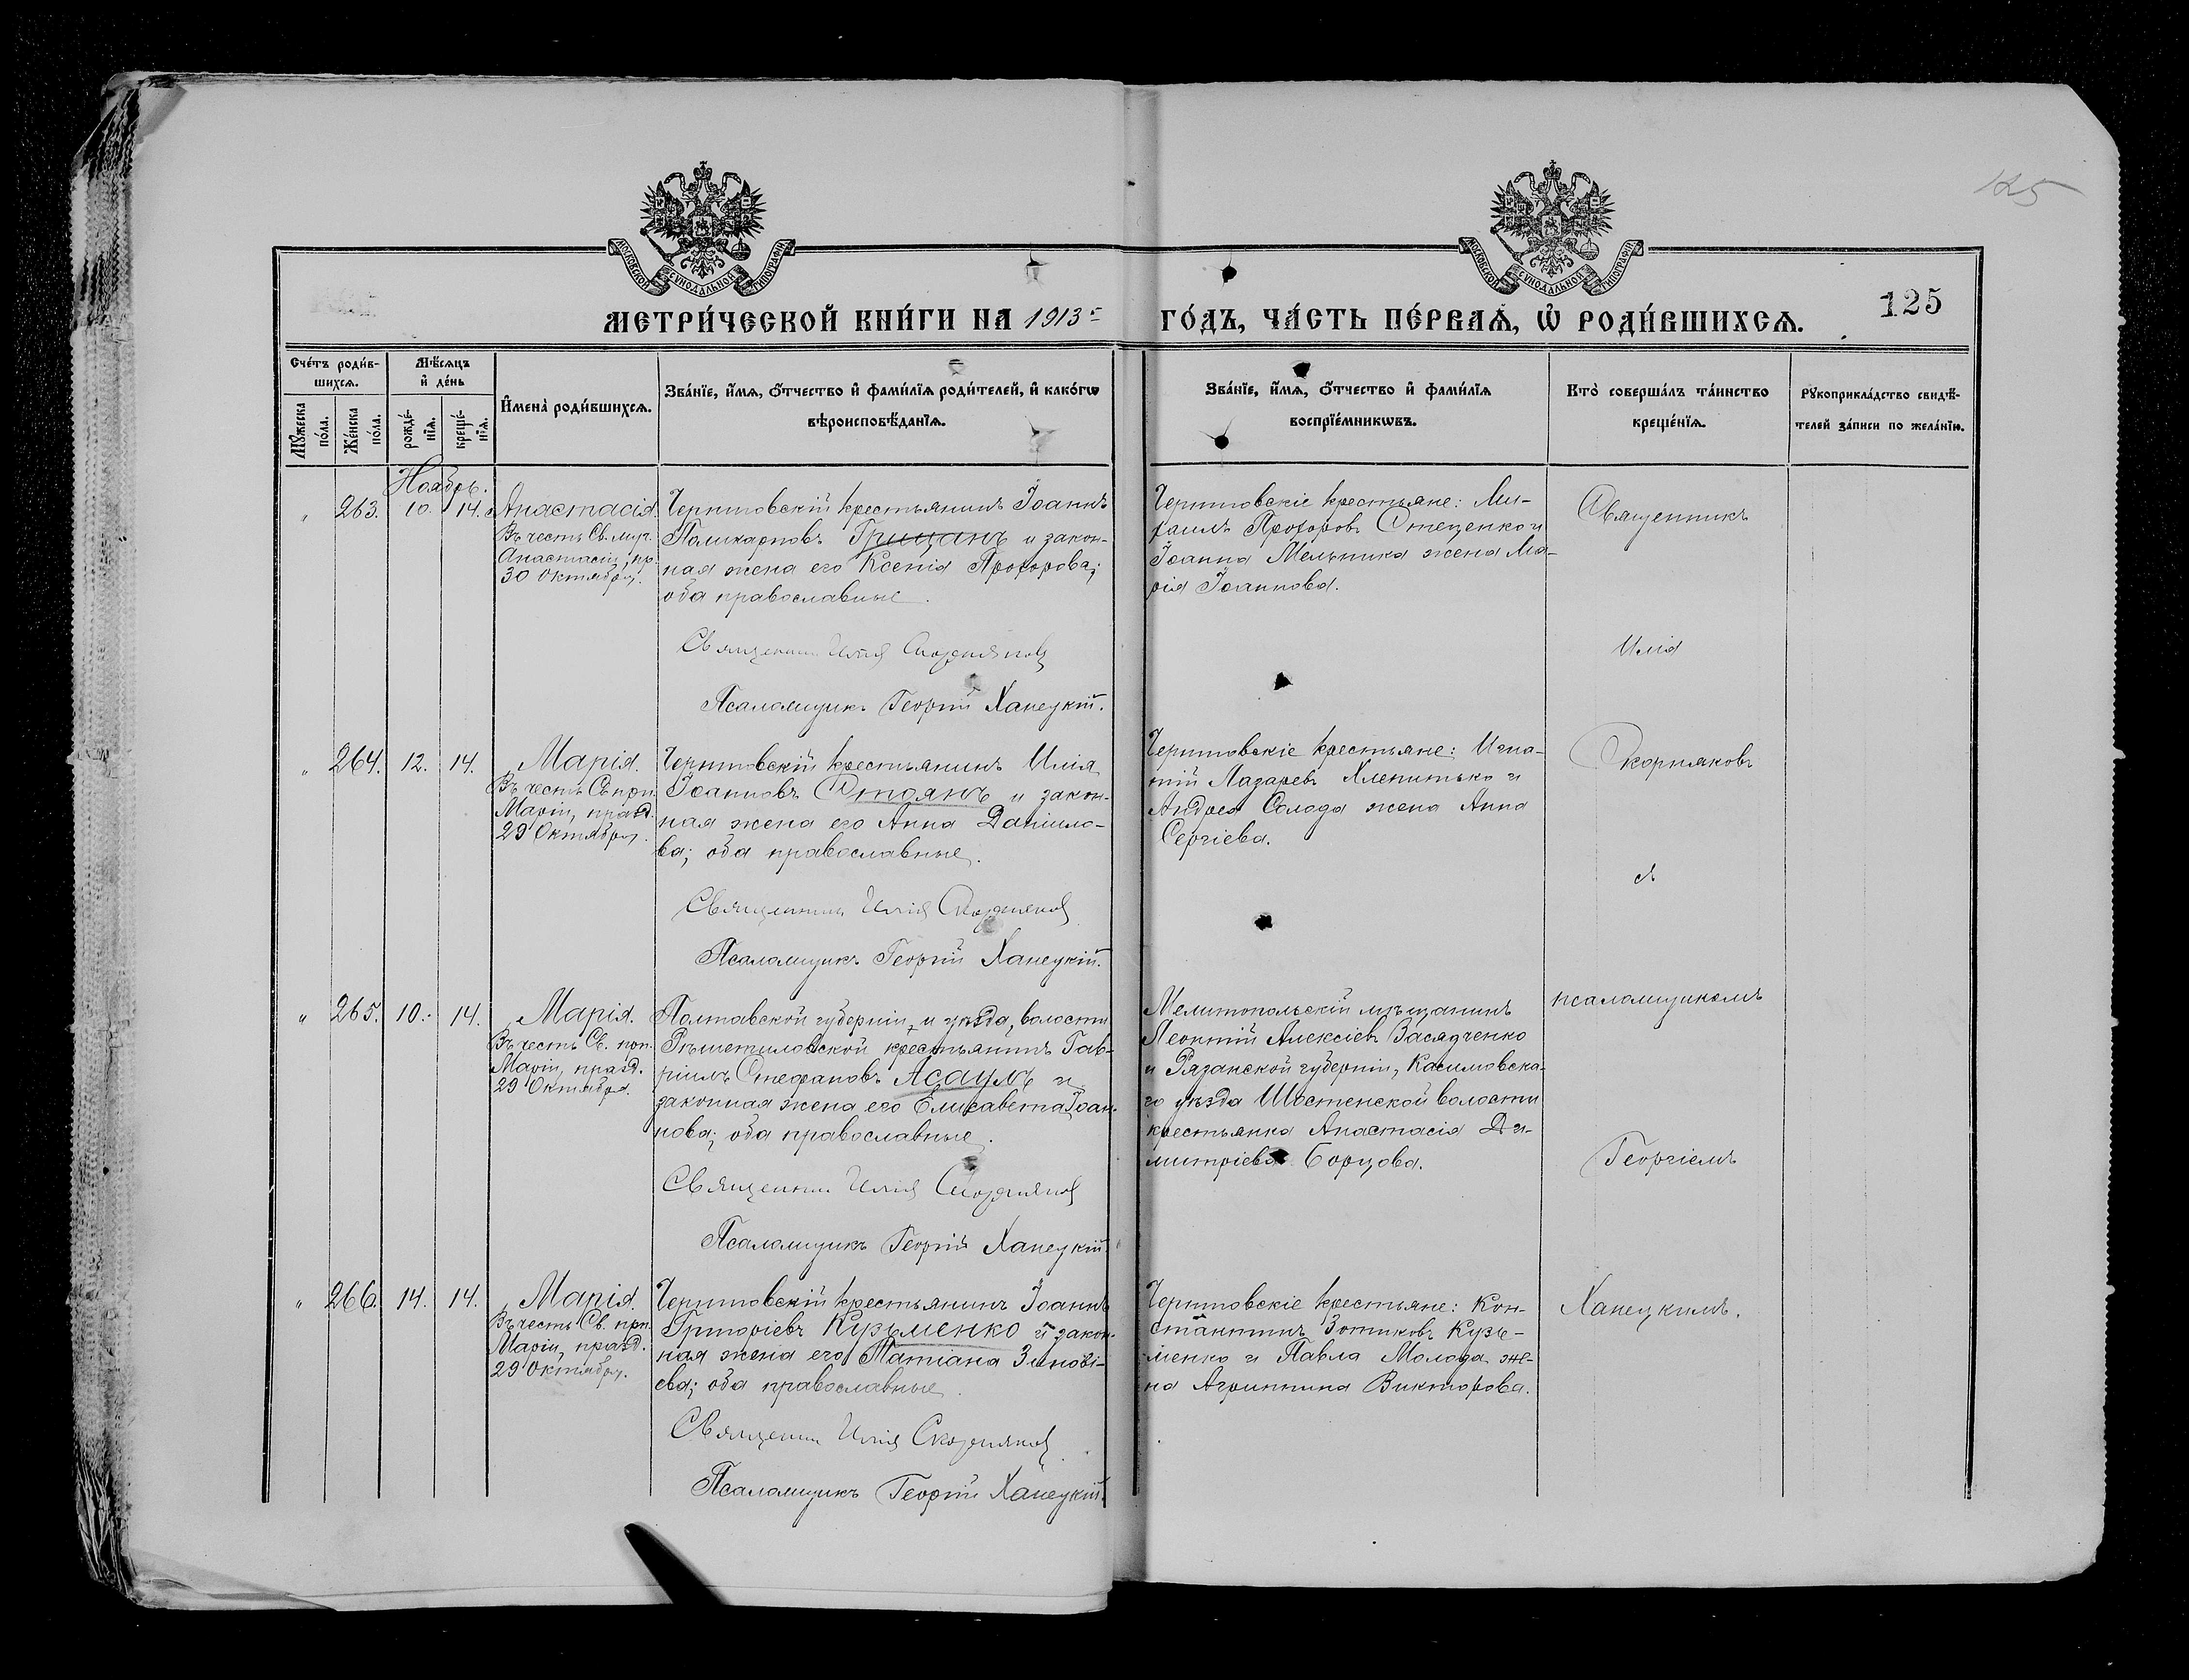 125
МОСКОВСКОЙ СѴНОДАЛЬНОЙ ТИПОГРАФІИ
МОСКОВСКОЙ СѴНОДАЛЬНОЙ ТИПОГРАФІИ
МЕТРИ́ЧЕСКОЙ КНИ́ГИ НА 1913
ГО́ДЪ, ЧА́СТЬ ПЕ́РВАѦ, Ѡ҆ РОДИ́ВШИХСѦ.
125
Сче́тъ роди́в-
шихсѧ.
Мѣ́сѧцъ
и҆ де́нь
Мꙋ́жеска
по́ла.
Же́нска
по́ла.
рожде́-
нїѧ.
креще́-
нїѧ.
И҆мена̀ роди́вшихсѧ.
Зва́нїе, и҆́мѧ, ѻ҆́тчество и҆ фами́лїѧ роди́телей, и҆ како́гѡ
вѣроисповѣ́данїѧ.
Зва́нїе, и҆́мѧ, ѻ҆́тчество и҆ фами́лїѧ
воспрїе́мникѡвъ.
Кто̀ соверша́лъ та́инство
креще́нїѧ.
Рꙋкоприкла́дство свидѣ́-
телей за́писи по жела́нїю.
Ноябрь.
" 263. 10. 14.
Анастасія.
Въ честь Св. муч.
Анастасіи, пр.
30 Октября.
Черниговскій крестьянинъ Іоаннъ
Поликарповъ Грицанъ и закон-
ная жена его Ксенія Прохорова;
оба православные.
Священникъ Илія Скорняковъ
Псаломщикъ Георгій Ханецкій.
Черниговскіе крестьяне: Ми-
хаилъ Прохоровъ Стеценко и
Іоанна Мельника жена Ма-
рія Іоаннова.
Священникъ
Илія
" 264. 12. 14.
Марія.
Въ честь Св. прп.
Маріи, празд.
29 Октября.
Черниговскій крестьянинъ Илія
Іоанновъ Стоянъ и закон-
ная жена его Анна Даніило-
ва; оба православные.
Священникъ Илія Скорняковъ
Псаломщикъ Георгій Ханецкій.
Черниговскіе крестьяне: Игна-
тій Лазаревъ Хлепитько и
Андрея Солода жена Анна
Сергіева.
Скорняковъ
съ
" 265. 10. 14.
Марія.
Въ честь Св. прп.
Маріи, празд.
29 Октября.
Полтавской губерніи, и уѣзда, волости
Рѣшетиловской крестьянинъ Гав-
ріилъ Стефановъ Асаулъ и
законная жена его Елисавета Іоан-
нова; оба православные.
Священникъ Илія Скорняковъ
Псаломщикъ Георгій Ханецкій.
Мелитопольскій мѣщанинъ
Леонтій Алексіевъ Засядченко
и Рязанской губерніи, Касимовска-
го уѣзда Шостенской волости
крестьянка Анастасія Ди-
митріева Борцова.
псаломщикомъ
Георгіемъ
" 266. 14. 14.
Марія.
Въ честь Св. прп.
Маріи, празд.
29 Октября.
Черниговскій крестьянинъ Іоаннъ
Григоріевъ Кузьменко и закон-
ная жена его Татіана Зинові-
ева; оба православные.
Священникъ Илія Скорняковъ
Псаломщикъ Георгій Ханецкій.
Черниговскіе крестьяне: Кон-
стантинъ Зотиковъ Кузь-
менко и Павла Молода же-
на Агриппина Викторова.
Ханецкимъ.